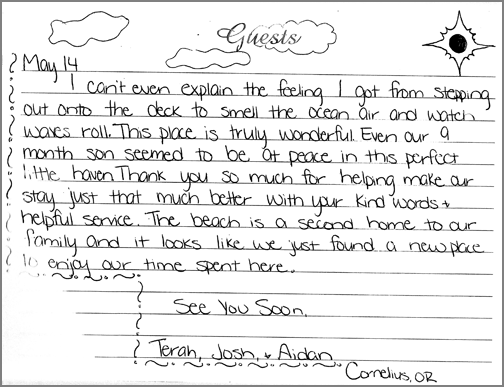 Guests
May 14
I can't even explain the feeling I got from stepping
out onto the deck to smell the ocean air and watch
waves roll. This place is truly wonderful. Even our 9
month son seemed to be at peace in this perfect
little haven. Thank you so much for helping make our
stay just that much better with your kind words +
helpful service. The beach is a second home to our
family and it looks like we just found a new place
to enjoy our time spent here.
See You Soon,
Terah, Josh, + Aidan
Cornelius, OR